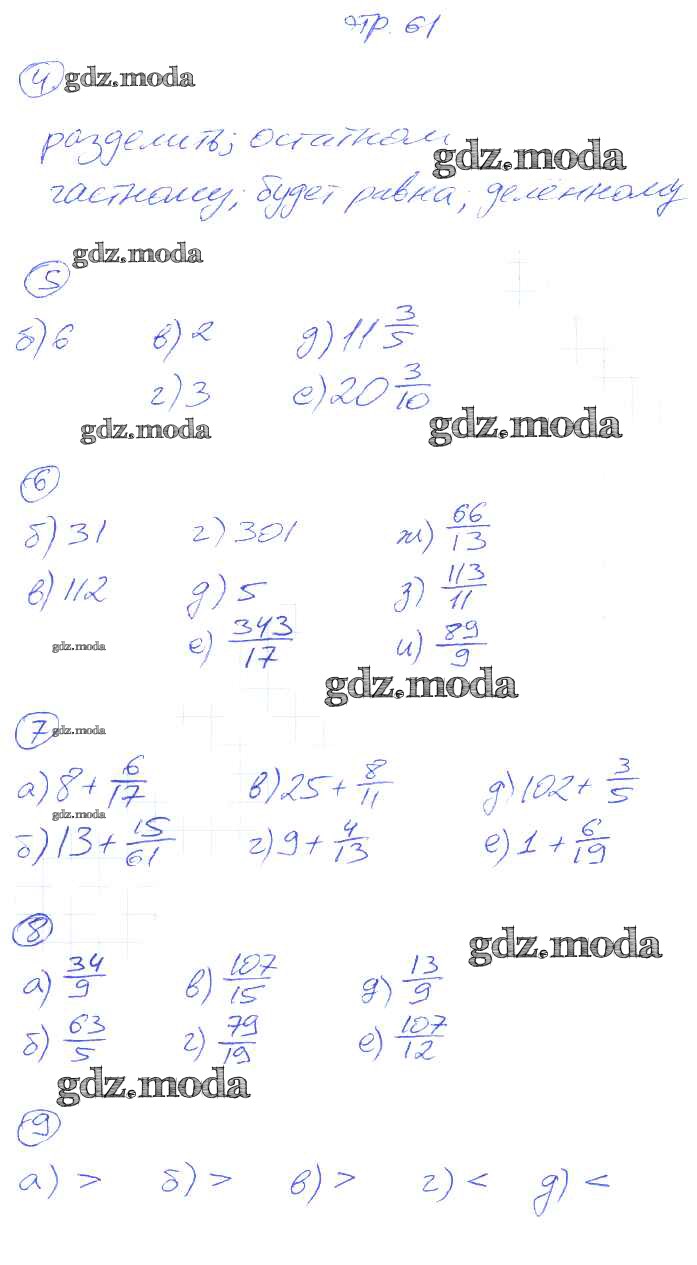 стр. 61
4 gdz.moda
разделить; остатком gdz.moda
частному; будет равна; делённому
gdz.moda
5
б) 6 в) 2 д) 11 3/5
г) 3 е) 20 3/10
gdz.moda gdz.moda
6
б) 31 г) 301 ж) 66/13
в) 112 д) 5 з) 113/11
gdz.moda е) 343/17 и) 89/9
gdz.moda
7 gdz.moda
а) 8 + 6/17 в) 25 + 8/11 д) 102 + 3/5
gdz.moda
б) 13 + 15/61 г) 9 + 4/13 е) 1 + 6/19
8 gdz.moda
а) 34/9 в) 107/15 д) 13/9
б) 63/5 г) 79/19 е) 107/12
gdz.moda
9
а) > б) > в) > г) < д) <